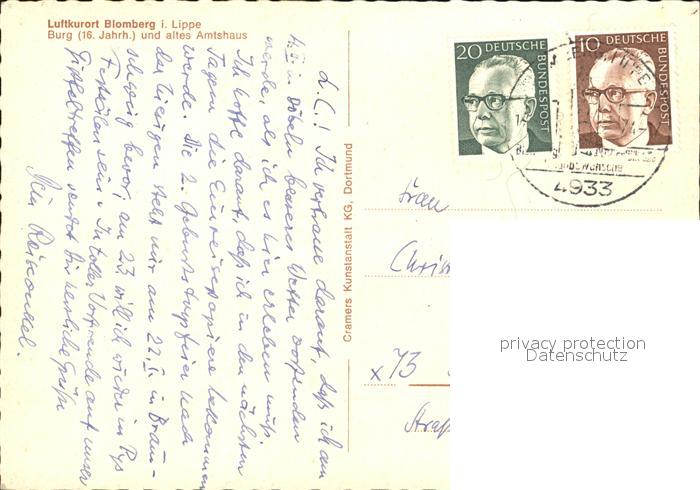 Luftkurort Blomberg i. Lippe
Burg (16. Jahrh.) und altes Amtshaus
L. C.! Ich vertraue darauf, daß ich am
in Döbeln besseres Wetter vorfinden
werde, als ich es hier erleben muß.
Ich hoffe darauf, daß ich in den nächsten
Tagen die Einreisepapiere bekommen
werde. Die 2. Geburtstagsfeier nach
der hiesigen steht mir am 22. in Braun-
schweig bevor, am 23. will ich wieder in
sein. In toller Vorfreude auf unser
sendet Dir herzliche Grüße
Dein
Cramers Kunstanstalt KG, Dortmund
20 DEUTSCHE BUNDESPOST
10 DEUTSCHE BUNDESPOST
4933
Frau
Chris
x 73
Straß
privacy protection
Datenschutz